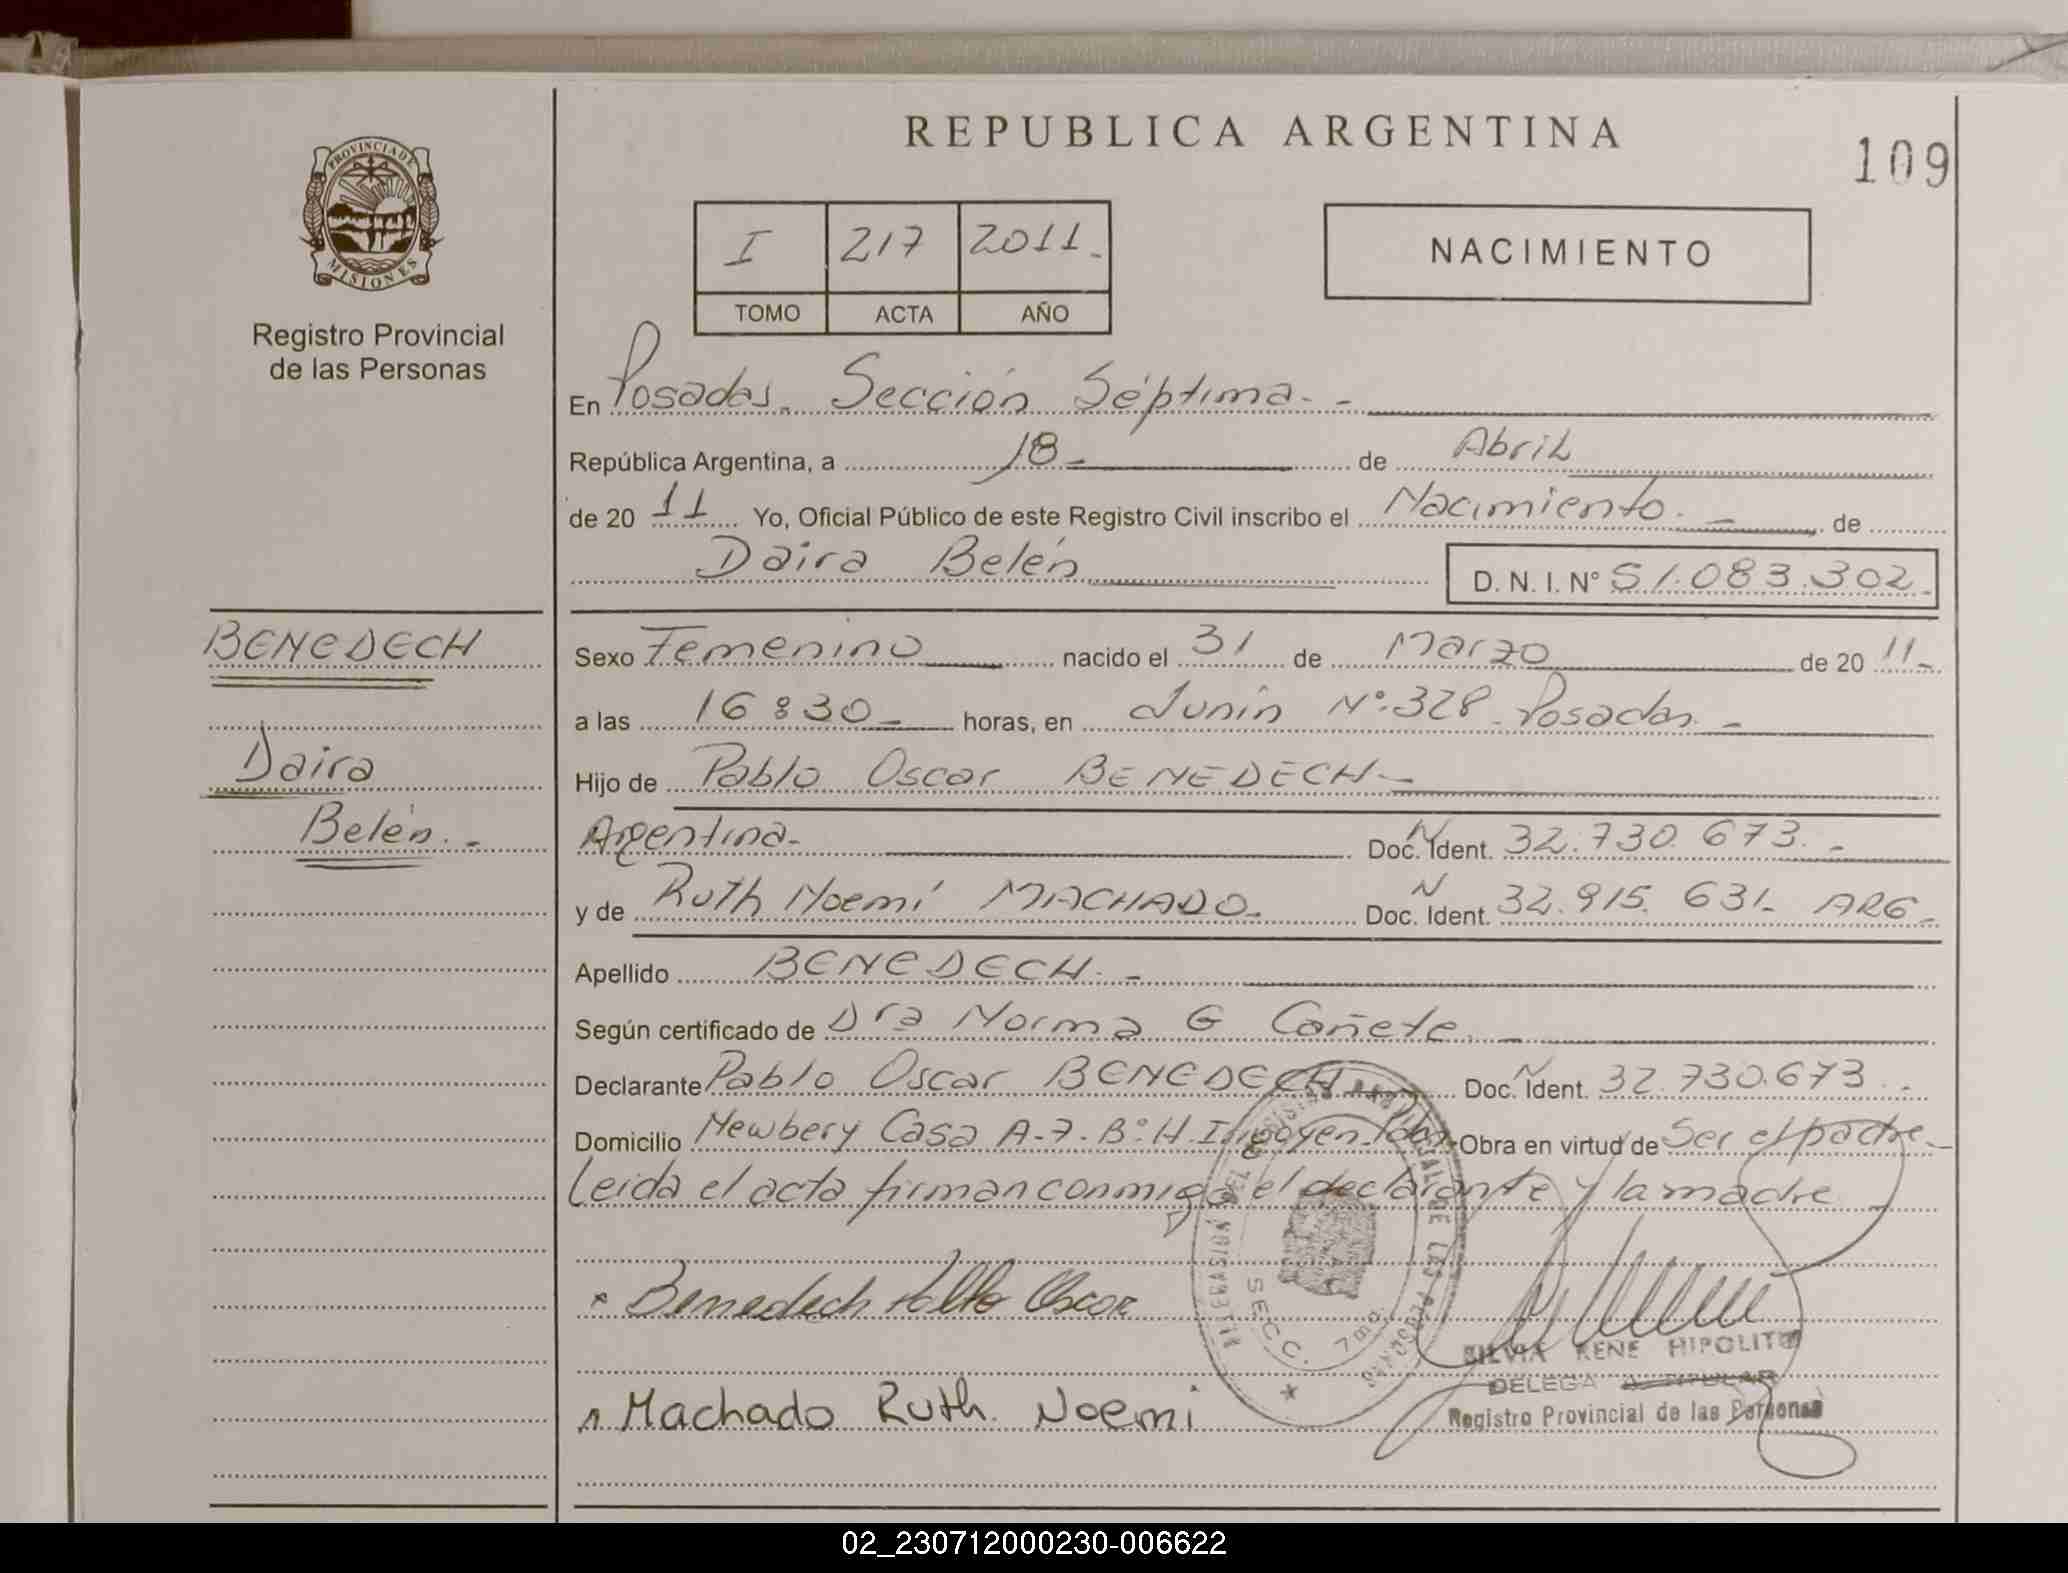 REPUBLICA ARGENTINA
109
PROVINCIA DE
MISIONES
Registro Provincial
de las Personas
I 217 2011.-
TOMO ACTA AÑO
NACIMIENTO
En Posadas. Sección Séptima.-
República Argentina, a 18- de Abril
de 2011 Yo, Oficial Público de este Registro Civil inscribo el Nacimiento.- de
Daira Belén D. N. I. N° 51.083.302.-
BENEDECH
Daira
Belén.-
Sexo Femenino nacido el 31 de Marzo de 2011.-
a las 16:30- horas, en Junín N°:328- Posadas.-
Hijo de Pablo Oscar BENEDECH-
Argentina- Doc. N Ident. 32.730.673.-
y de Ruth Noemí MACHADO- Doc. N Ident. 32.915.631- ARG-
Apellido BENEDECH.-
Según certificado de Dra Norma G Cañete.-
Declarante Pablo Oscar BENEDECH Doc. N Ident. 32.730.673.-
Domicilio Newbery Casa A-7-B°:H.Irigoyen Obra en virtud de Ser el padre-
Leida el acta firman conmigo el declarante y la madre
Benedech Pablo Oscar
Machado Ruth Noemi
SECC. 7ma.
SILVIA RENE HIPOLITO
DELEGADA TITULAR
Registro Provincial de las Personas
02_230712000230-006622